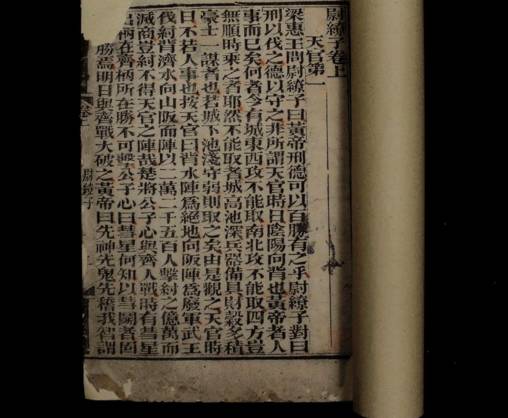 尉繚子卷上
天官第一
梁惠王問尉繚子曰黃帝刑德可以百勝有之乎尉繚子對曰
刑以伐之德以守之非所謂天官時日陰陽向背也黃帝者人
事而已矣何者今有城東西攻不能取南北攻不能取四方豈
無順時乘之者耶然不能取者城高池深兵器備具財穀多積
豪士一謀者也若城下池淺守弱則取之矣由是觀之天官時
日不若人事也按天官曰背水陣爲絕地向阪陣爲廢軍武王
伐紂背濟水向山阪而陣以二萬二千五百人擊紂之億萬而
滅商豈紂不得天官之陣哉楚將公子心與齊人戰時有彗星
出柄在齊柄所在勝不可擊公子心曰彗星何知以彗鬭者固
勝焉明日與齊戰大破之黃帝曰先神先鬼先稽我智謂
尉繚子
卷上